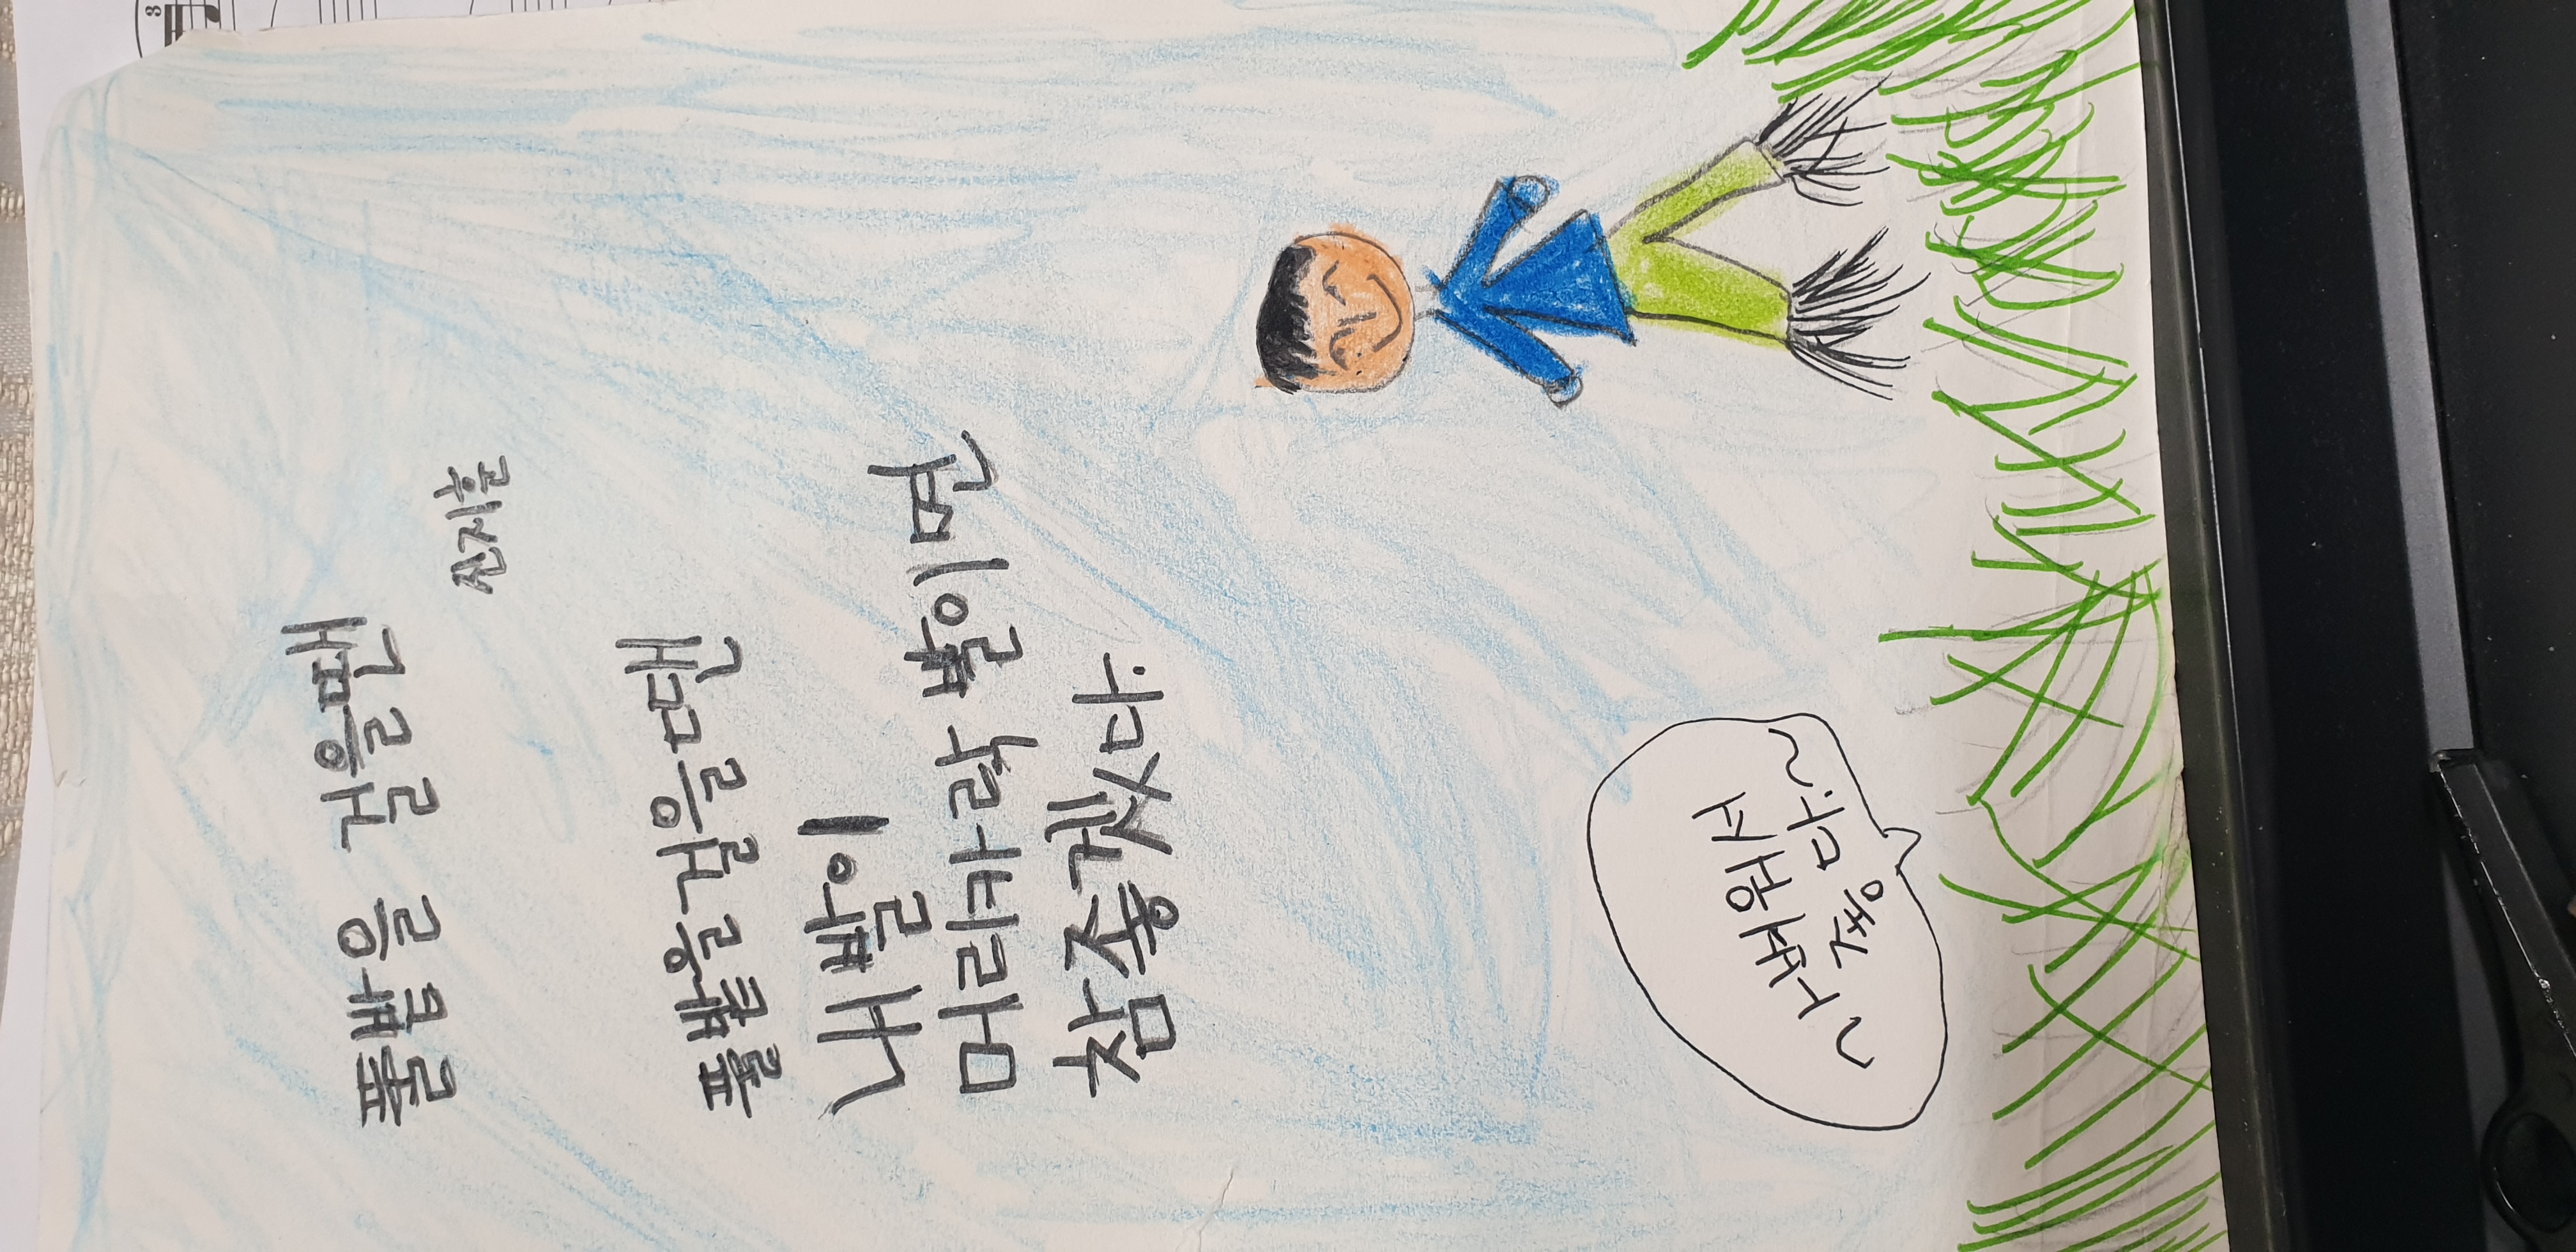 풀밭을 걸을땐
신지훈
풀밭을걸을땐
내 발이
머리카락 발이면
참좋겠다.
가벼워서
좋다.~
3